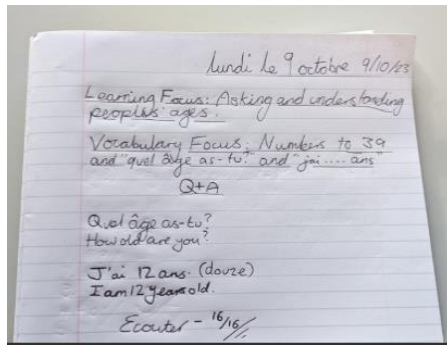 lundi le 9 octobre 9/10/23
Learning Focus: Asking and understanding
peoples' ages.
Vocabulary Focus: Numbers to 39
and "quel âge as-tu?" and "j'ai .... ans"
Q+A
Quel âge as-tu?
How old are you?
J'ai 12 ans. (douze)
I am 12 years old.
Ecouter - 16/16